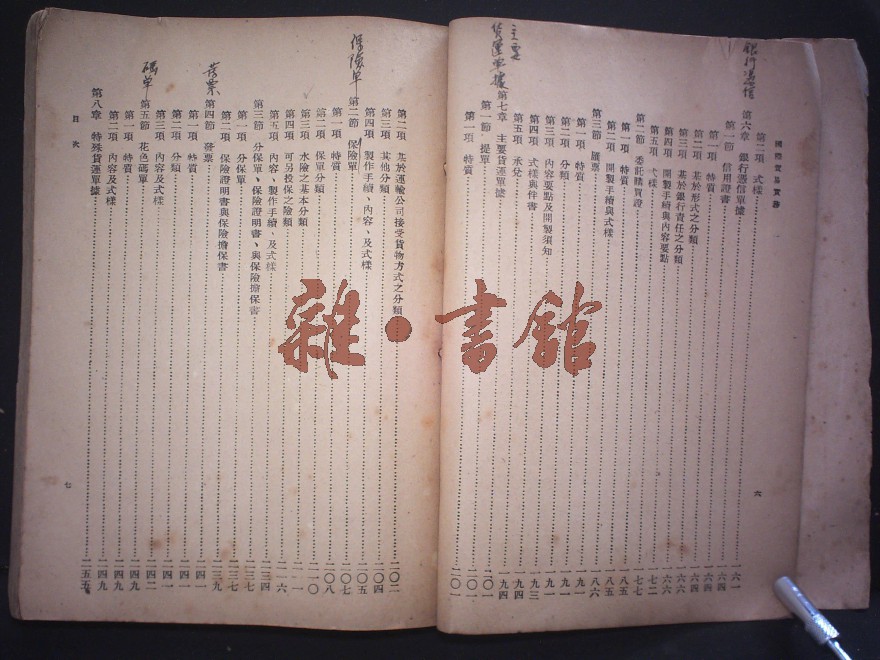 國際貿易實務
六
第二項 式樣……一六一
第六章 銀行憑信單據
第一節 信用證書……一六四
第一項 特質……一六四
第二項 基於形式之分類……一六四
第三項 基於銀行責任之分類……一六六
第四項 開製手續與內容要點……一六六
第五項 式樣……一七二
第二節 委託購買證……一七七
第一項 特質……一八五
第二項 開製手續與式樣……一八五
第三節 匯票……一八六
第一項 特質……一九一
第二項 分類……一九一
第三項 內容要點及開製須知……一九一
第四項 式樣與伴書……一九三
第五項 承兌……一九四
第七章 主要貨運單據……一九四
第一節 提單……二〇一
第一項 特質……二〇一
銀行憑信
主要
貨運單據
第二項 基於運輸公司接受貨物方式之分類……二〇二
第三項 其他分類……二〇四
第四項 製作手續、內容、及式樣……二〇五
第二節 保險單……二〇七
第一項 特質……二〇八
第二項 保單分類……二一〇
第三項 水險之基本分類……二一一
第四項 可另投保之險類……二一六
第五項 內容、製作手續、及式樣……二三四
第三節 分保單、保險證明書、與保險擔保書……二三七
第一項 分保單……二三七
第二項 保險證明書與保險擔保書……二三九
第四節 發票……二四一
第一項 特質……二四一
第二項 分類……二四一
第三項 內容及式樣……二四二
第五節 花色碼單……二四九
第一項 特質……二四九
第二項 內容及式樣……二四九
第八章 特殊貨運單據……二五五
目次
七
保險單
發票
碼單
雜·書館